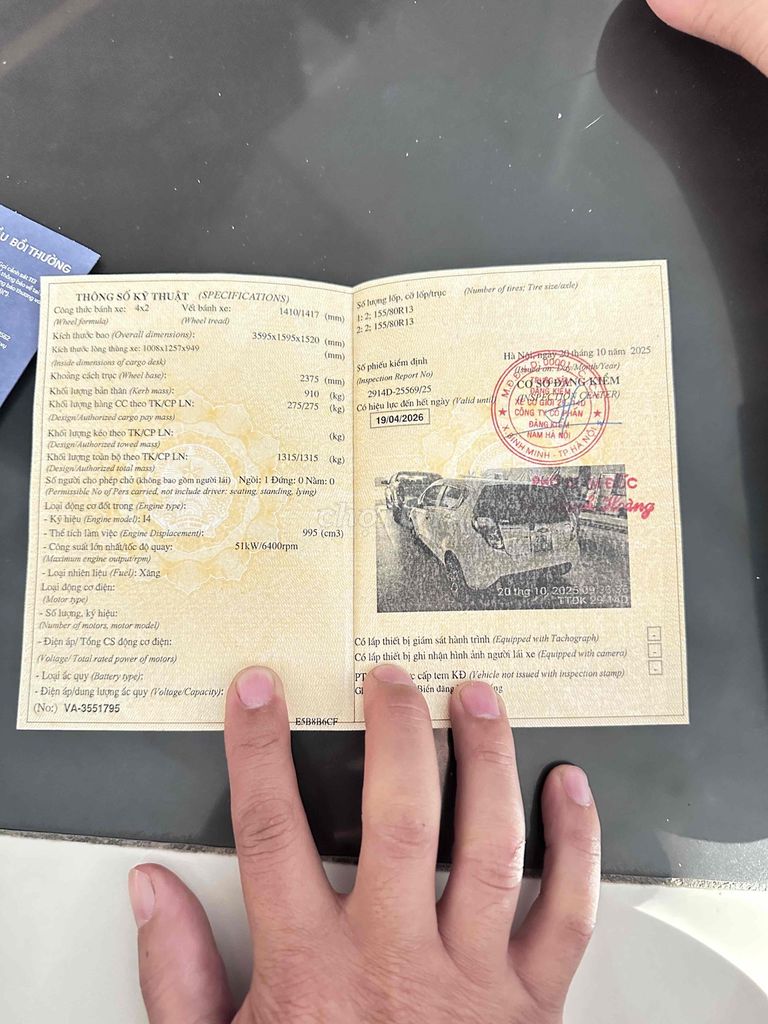 ẦU BỒI THƯỜNG
THÔNG SỐ KỸ THUẬT (SPECIFICATIONS)
Công thức bánh xe: 4x2 Vết bánh xe: 1410/1417 (mm)
(Wheel formula) (Wheel tread)
Kích thước bao (Overall dimensions): 3595x1595x1520 (mm)
Kích thước lòng thùng xe: 1008x1257x949 (mm)
(Inside dimensions of cargo desk)
Khoảng cách trục (Wheel base): 2375 (mm)
Khối lượng bản thân (Kerb mass): 910 (kg)
Khối lượng hàng CC theo TK/CP LN: 275/275 (kg)
(Design/Authorized cargo pay mass)
Khối lượng kéo theo TK/CP LN: (kg)
(Design/Authorized towed mass)
Khối lượng toàn bộ theo TK/CP LN: 1315/1315 (kg)
(Design/Authorized total mass)
Số người cho phép chở (không bao gồm người lái) Ngồi: 1 Đứng: 0 Nằm: 0
(Permissible No of Pers carried, not include driver: seating, standing, lying)
Loại động cơ đốt trong (Engine type):
- Ký hiệu (Engine model): I4
- Thể tích làm việc (Engine Displacement): 995 (cm3)
- Công suất lớn nhất/tốc độ quay: 51kW/6400rpm
(Maximum engine output/rpm)
- Loại nhiên liệu (Fuel): Xăng
Loại động cơ điện:
(Motor type)
- Số lượng, ký hiệu:
(Number of motors, motor model)
- Điện áp/ Tổng CS động cơ điện:
(Voltage/ Total rated power of motors)
- Loại ắc quy (Battery type):
- Điện áp/dung lượng ắc quy (Voltage/Capacity):
(No:) VA-3551795
E5B8B6CF
Số lượng lốp, cỡ lốp/trục (Number of tires; Tire size/axle)
1: 2; 155/80R13
2: 2; 155/80R13
Hà Nội, ngày 20 tháng 10 năm 2025
(Issued on: Day/Month/Year)
Số phiếu kiểm định
(Inspection Report No)
2914D-25569/25
CƠ SỞ ĐĂNG KIỂM
(INSPECTION CENTER)
Có hiệu lực đến hết ngày (Valid until)
19/04/2026
ĐĂNG KIỂM
XE CƠ GIỚI 29-14D
CÔNG TY CỔ PHẦN
ĐĂNG KIỂM
NAM HÀ NỘI
X.BÌNH MINH - TP HÀ NỘI
PHÓ GIÁM ĐỐC
Hoàng
20 thg 10, 2025 09:23:
TTDK 29.14D
Có lắp thiết bị giám sát hành trình (Equipped with Tachograph) -
Có lắp thiết bị ghi nhận hình ảnh người lái xe (Equipped with camera) -
cấp tem KĐ (Vehicle not issued with inspection stamp) -
Biển đăng